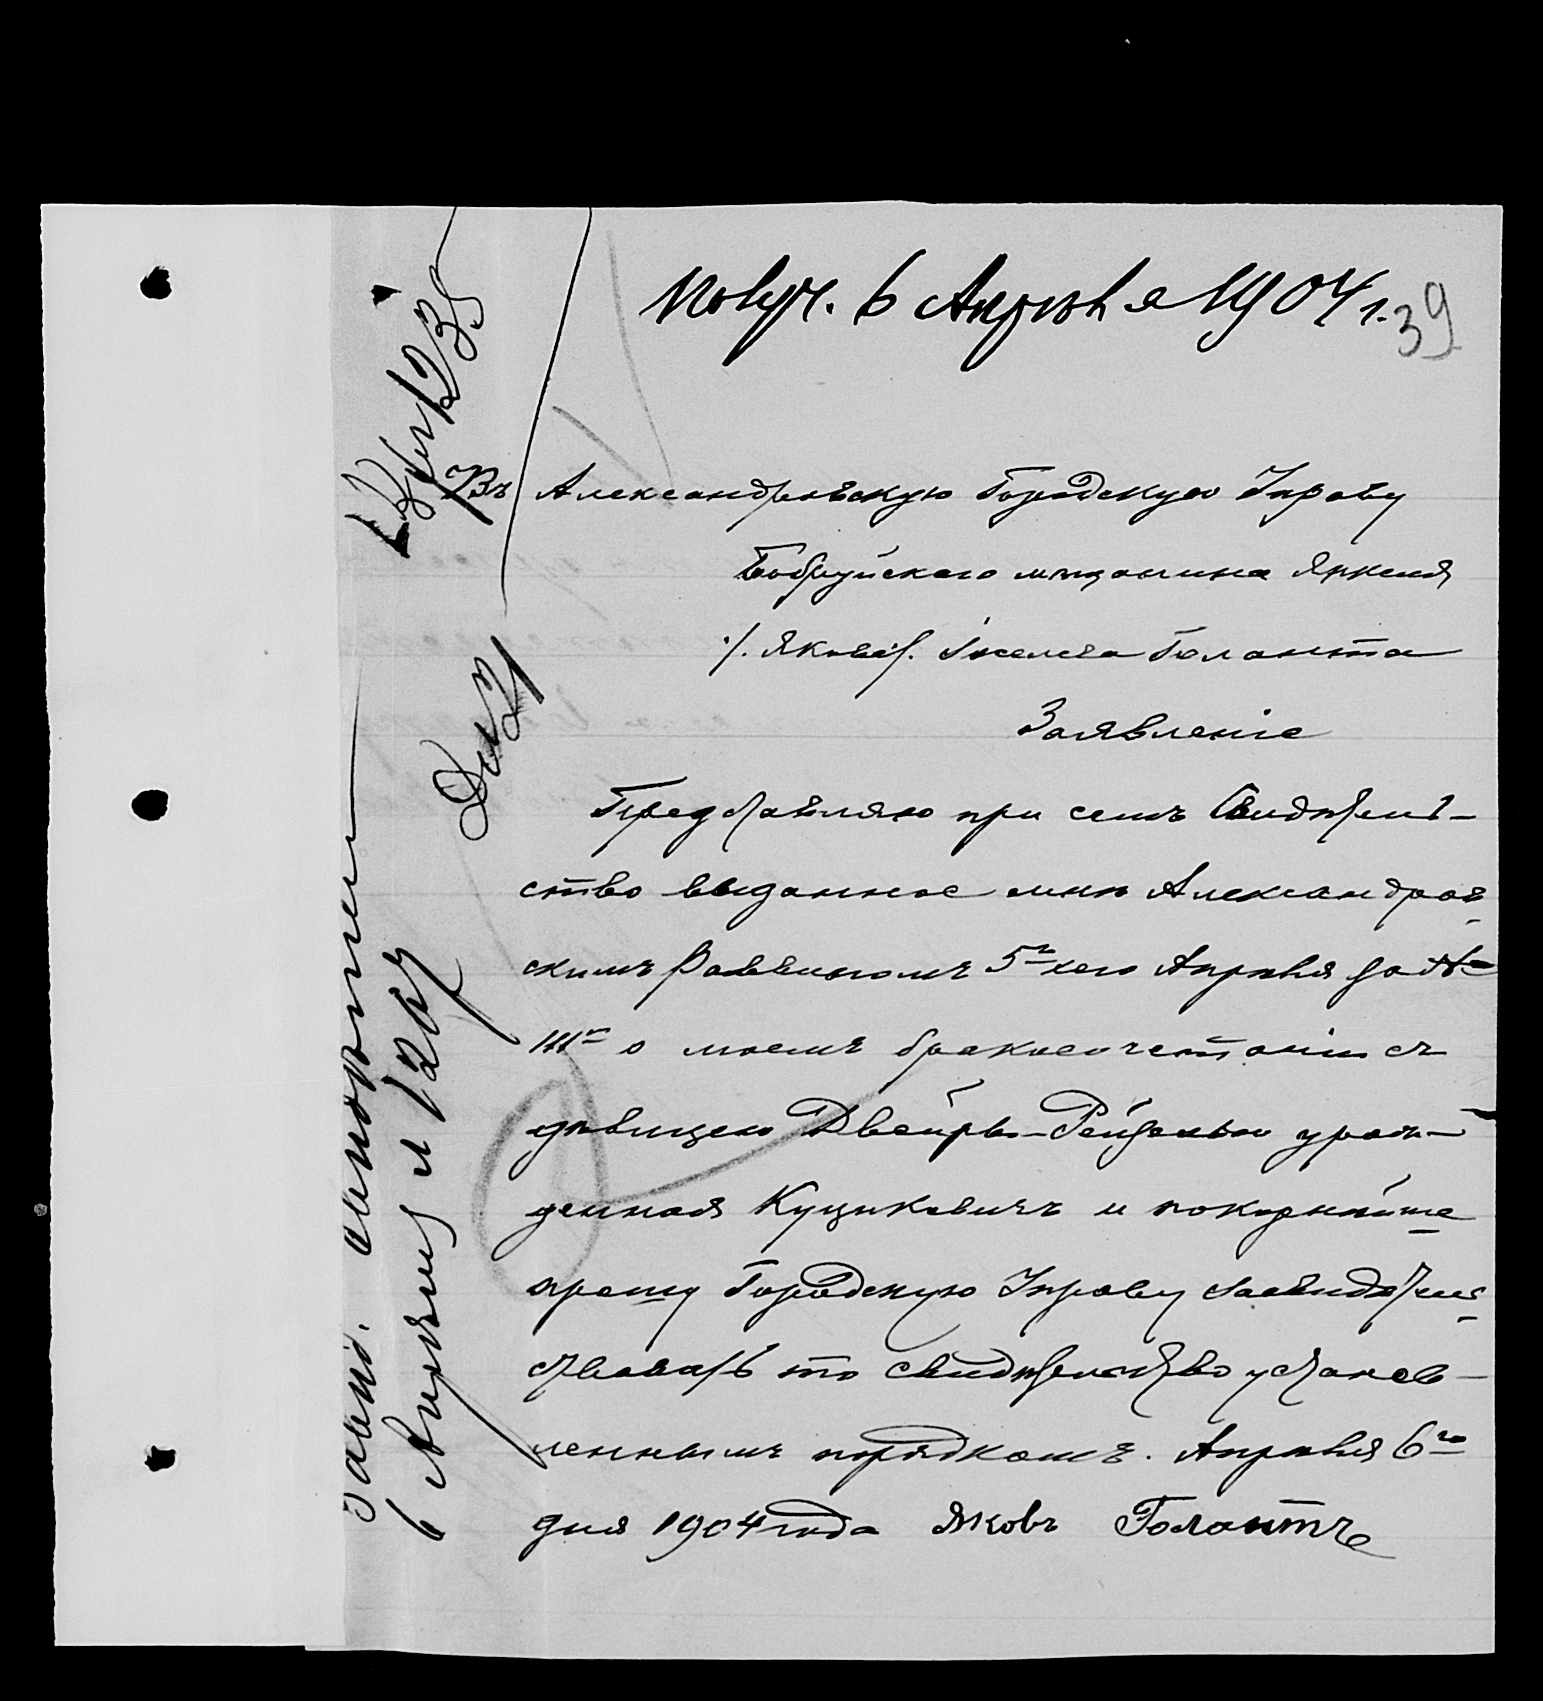 Получ. 6 Апрѣля 1904 г.
39
Въ Александровскую Городскую Управу
Бобруйскаго мѣщанина Янкеля
/. Яковъ /. Іоселева Голанта
Заявленіе
Представляю при семъ Свидѣтель-
ство выданное мнѣ Александров-
скимъ Раввиномъ 5го сего Апрѣля за №
111м о моемъ бракосочетаніи съ
дѣвицею Двейрою-Рейзелью урож-
денная Куцикевичъ и покорнѣйше
прошу Городскую Управу засвидѣтель-
ствовать то свидѣтельство установ-
леннымъ порядкомъ. Апрѣля 6го
дня 1904 года Яковъ Голантъ
6 Апрѣля № 1204